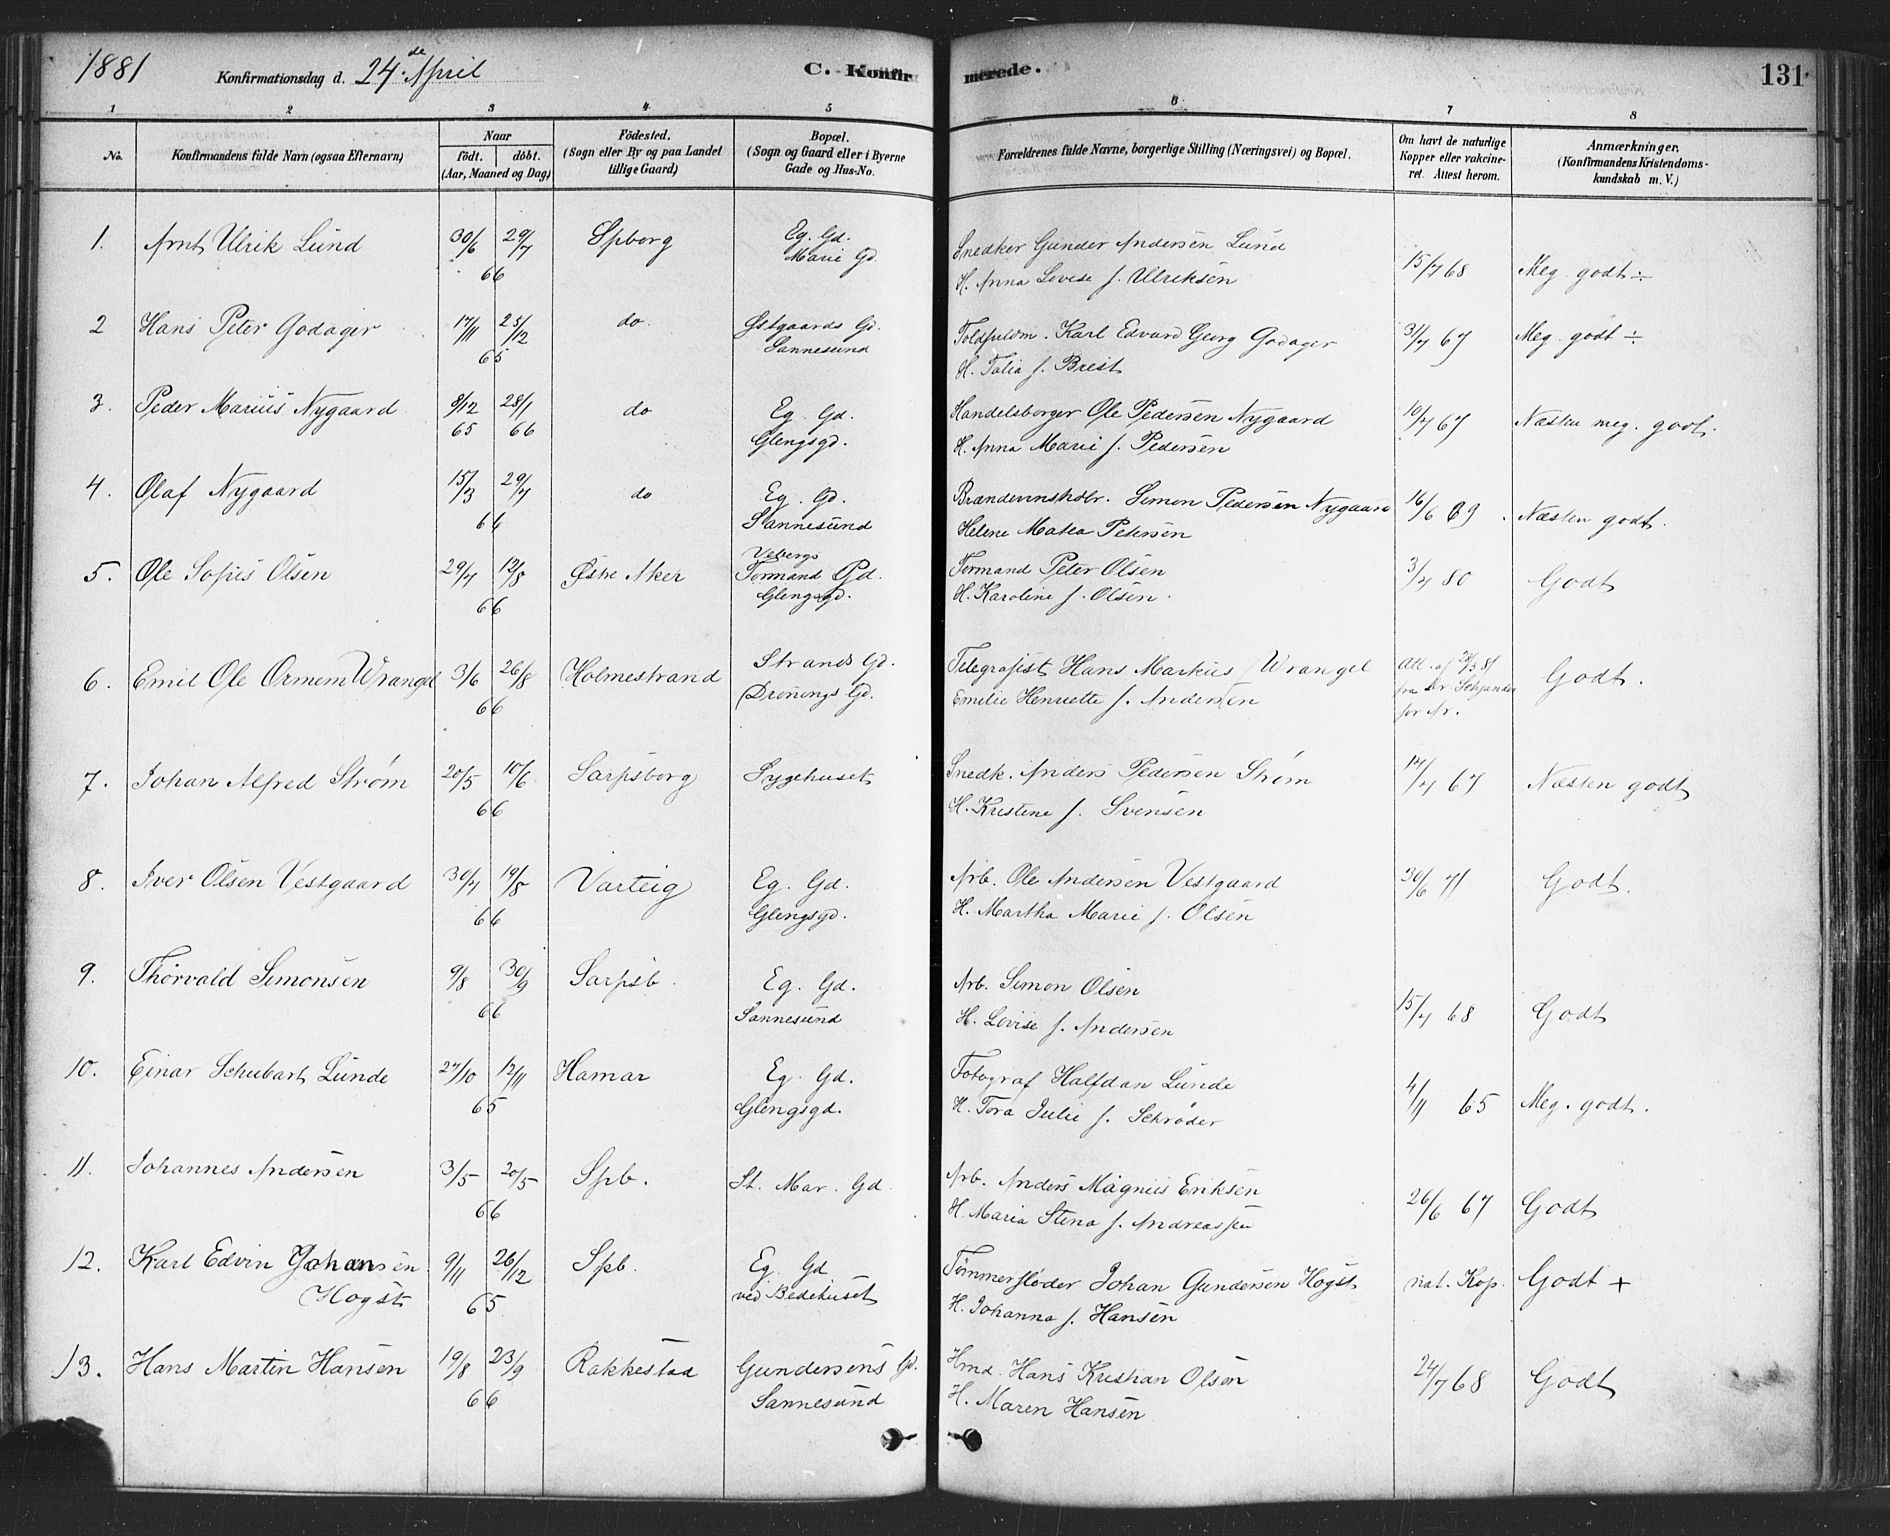 1881 Konfirmationsdag d. 24de April C. Konfirmerede. 131
1 2 3 4 5 6 7 8
No. Konfirmandens fulde Navn (ogsaa Efternavn) Naar født. døbt. (Aar, Maaned og Dag) Fødested. (Sogn eller By og paa Landet tillige Gaard) Bopæl. (Sogn og Gaard eller i Byerne Gade og Hus-No. Forældrenes fulde Navne, borgerlige Stilling (Næringsvei) og Bopæl. Om havt de naturlige Kopper eller vakcineret. Attest herom. Anmærkninger. (Konfirmandens Kristendomskundskab m. V.)
1. Arnt Ulrik Lund 30/6 29/7 Spborg Eg. Gd. Snedker Gunder Andersen Lund
66 Marie Gd. H. Anna Lovise f. Ulriksen 15/7 68 Meg. godt ÷
2 Hans Peter Godager 17/11 25/12 do. Østgaards Gd. Karl Edvard Georg Godager 31/7 67 Meg. godt ÷
65 Sannesund H. Talia f. Brest
3. Peder Marius Nygaard 8/12 28/1 do Eg. Gd. Handelsborger Ole Pedersen Nygaard 10/7 67 Næsten meg. godt.
65 66 Glengsgd. H. Anna Marie f. Pedersen
4. Olaf Nygaard 15/3 29/7 do Eg. Gd. Simon Pedersen Nygaard 16/6 69 Næsten godt.
66 Sannesund Helene Matea Petersen
5. Ole Sofus Olsen 29/7 12/8 Østre Aker Vebergs Formand Gd. Formand Peter Olsen 3/7 80 Godt
66 Glengsgd. H. Karoline f. Olsen.
6. Emil Ole Ormem Wrangel 3/6 26/8 Holmestrand Strands Gd. Telegrafist Hans Markus Wrangel Att. af 28/3 81 Godt.
66 Dronnings Gd. Emilie Henriette f. Andersen fra Dr Schjander for Ar.
7. Johan Alfred Strøm 20/5 10/6 Sarpsborg Sygehuset Snedk. Anders Pedersen Strøm 14/7 67 Næsten godt
66 H. Kristene f. Svensen
8. Iver Olsen Vestgaard 30/7 19/8 Varteig Eg. Gd. Arb. Ole Andersen Vestgaard 30/6 71 Godt.
66 Glengsgd. H. Martha Marie f. Olsen
9. Thorvald Simonsen 9/8 30/9 Sarpsb. Eg. Gd. Arb. Simon Olsen
66 Sannesund H. Lovise f. Andersen 15/7 68 Godt
10. Einar Schubart Lunde 27/10 12/11 Hamar Eg. Gd. Fotograf Halfdan Lunde 4/11 65 Meg. godt.
65 Glengsgd. H. Tora Julie f. Schrøder
11. Johannes Andersen 3/5 20/5 Spb. St. Mar. Gd Arb. Anders Magnus Eriksen
66 H. Maria Stena f. Andreassen 26/6 67 Godt
12. Karl Edvin Johansen 9/11 26/12 Spb. Eg. Gd Tømmerfløder Johan Gundersen Høgst nat. Kop. Godt +
Høgst 65 ved Bedehuset H. Johanna f. Hansen
13. Hans Martin Hansen 19/8 23/9 Rakkestad Gundersens Gd. Hmd. Hans Kristian Olsen 24/7 68 Godt
66 Sannesund H. Maren Hansen